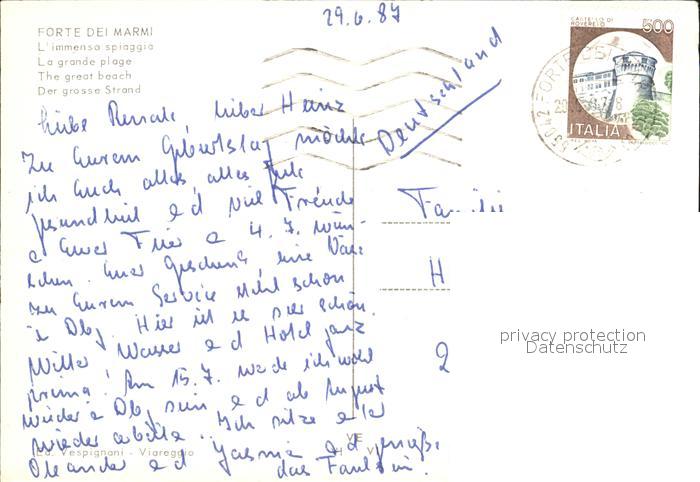 29.6.87
FORTE DEI MARMI
L'immensa spiaggia
La grande plage
The great beach
Der grosse Strand
CASTELLO DI ROVERETO
500
ITALIA
Deutschland
Liebe Renate, lieber Heinz
Zu Eurem Geburtstag möchte
ich Euch alles alles Gute
Gesundheit u d viel Freude
Eurer Feier 4.7. wün-
schen. Euer Geschenk, eine Vase
zu Eurem Service steht schon
Dbg. Hier ist es sehr schön.
Wetter Wasser u d Hotel ganz
prima! Am 15.7. werde ich wohl
wieder Dbg sein u d ab August
wieder arbeiten. Ich sitze unter
Oleander u d Jasmin u d genieße
das Faulsein.
Familie
H
2
privacy protection
Datenschutz
Ed. Vespignani - Viareggio